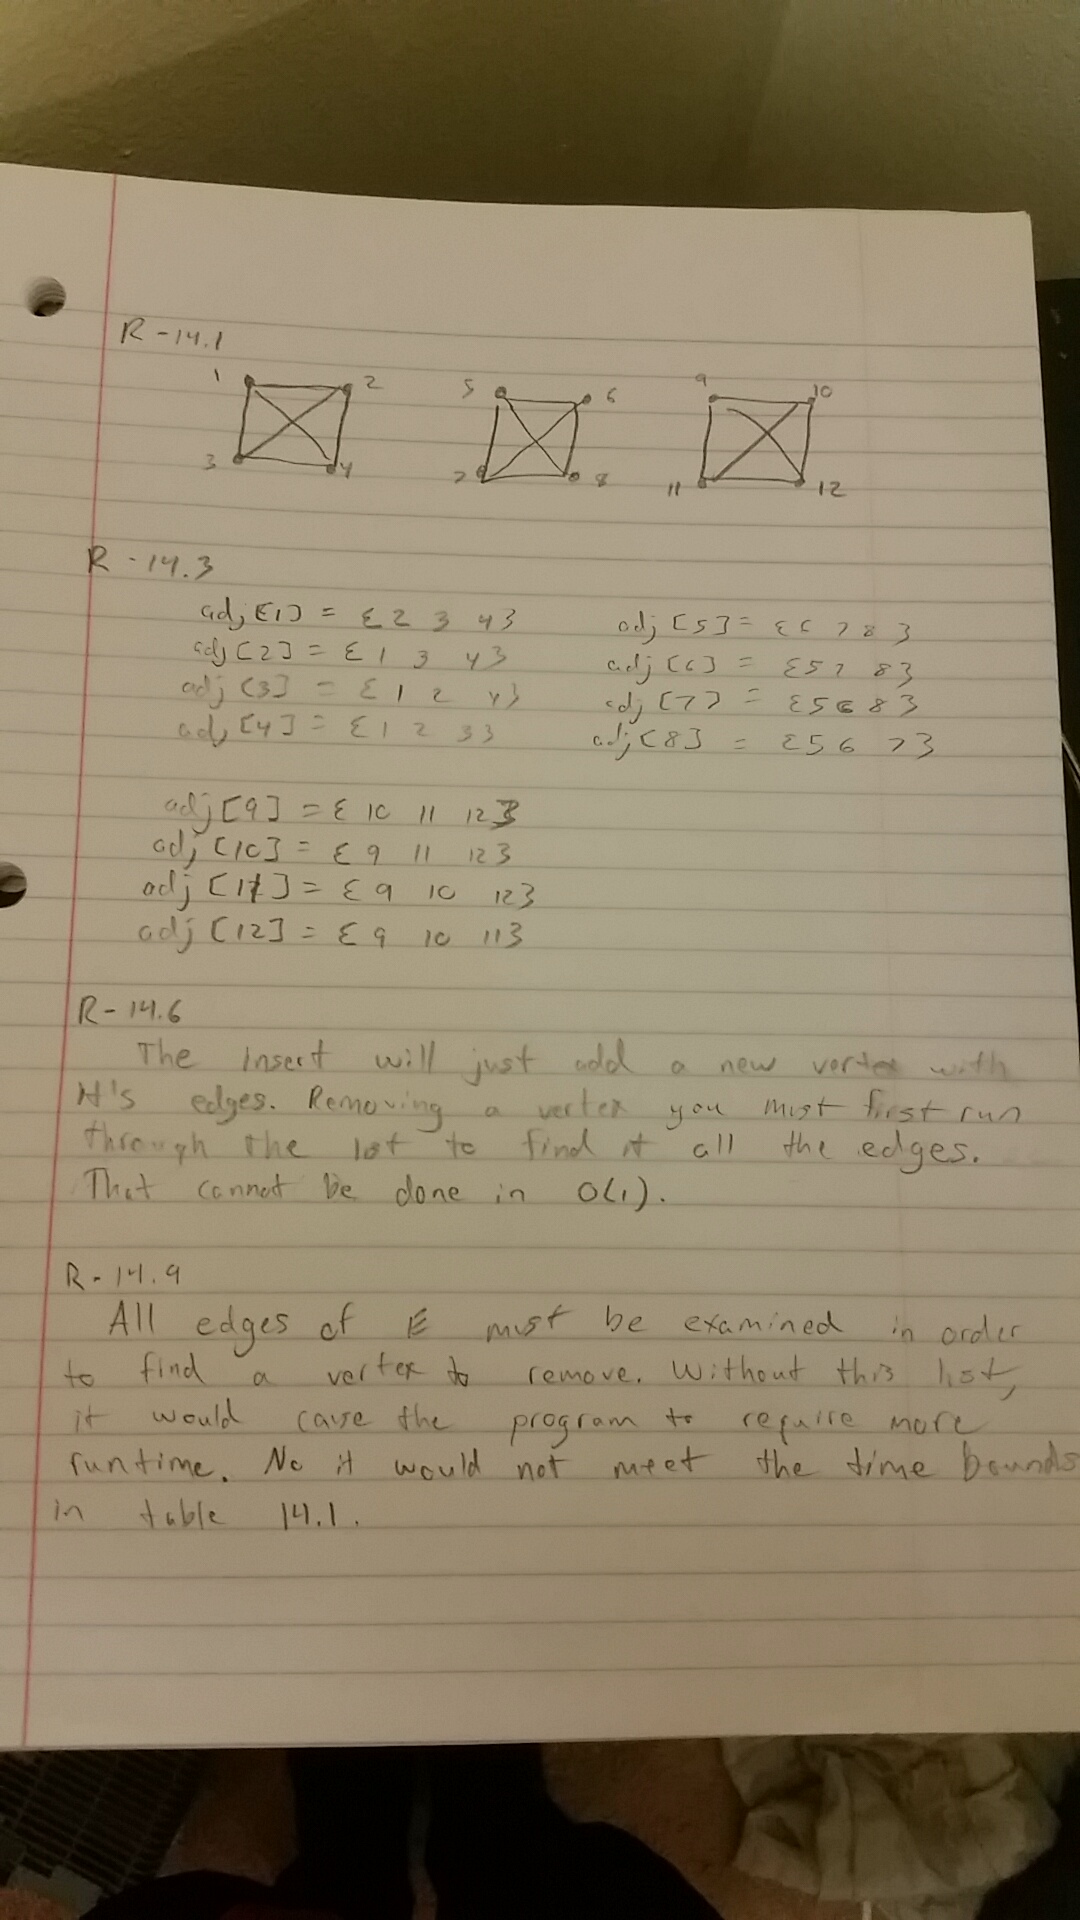 R-14.1
1 2 5 6 9 10
3 4 7 8 11 12
R-14.3
adj[1] = {2 3 4} adj[5] = {6 7 8}
adj[2] = {1 3 4} adj[6] = {5 7 8}
adj[3] = {1 2 4} adj[7] = {5 6 8}
adj[4] = {1 2 3} adj[8] = {5 6 7}
adj[9] = {10 11 12}
adj[10] = {9 11 12}
adj[11] = {9 10 12}
adj[12] = {9 10 11}
R-14.6
The insert will just add a new vertex with
it's edges. Removing a vertex you must first run
through the list to find it all the edges.
That cannot be done in O(1).
R-14.9
All edges of E must be examined in order
to find a vertex to remove. Without this list,
it would cause the program to require more
runtime. No it would not meet the time bounds
in table 14.1.